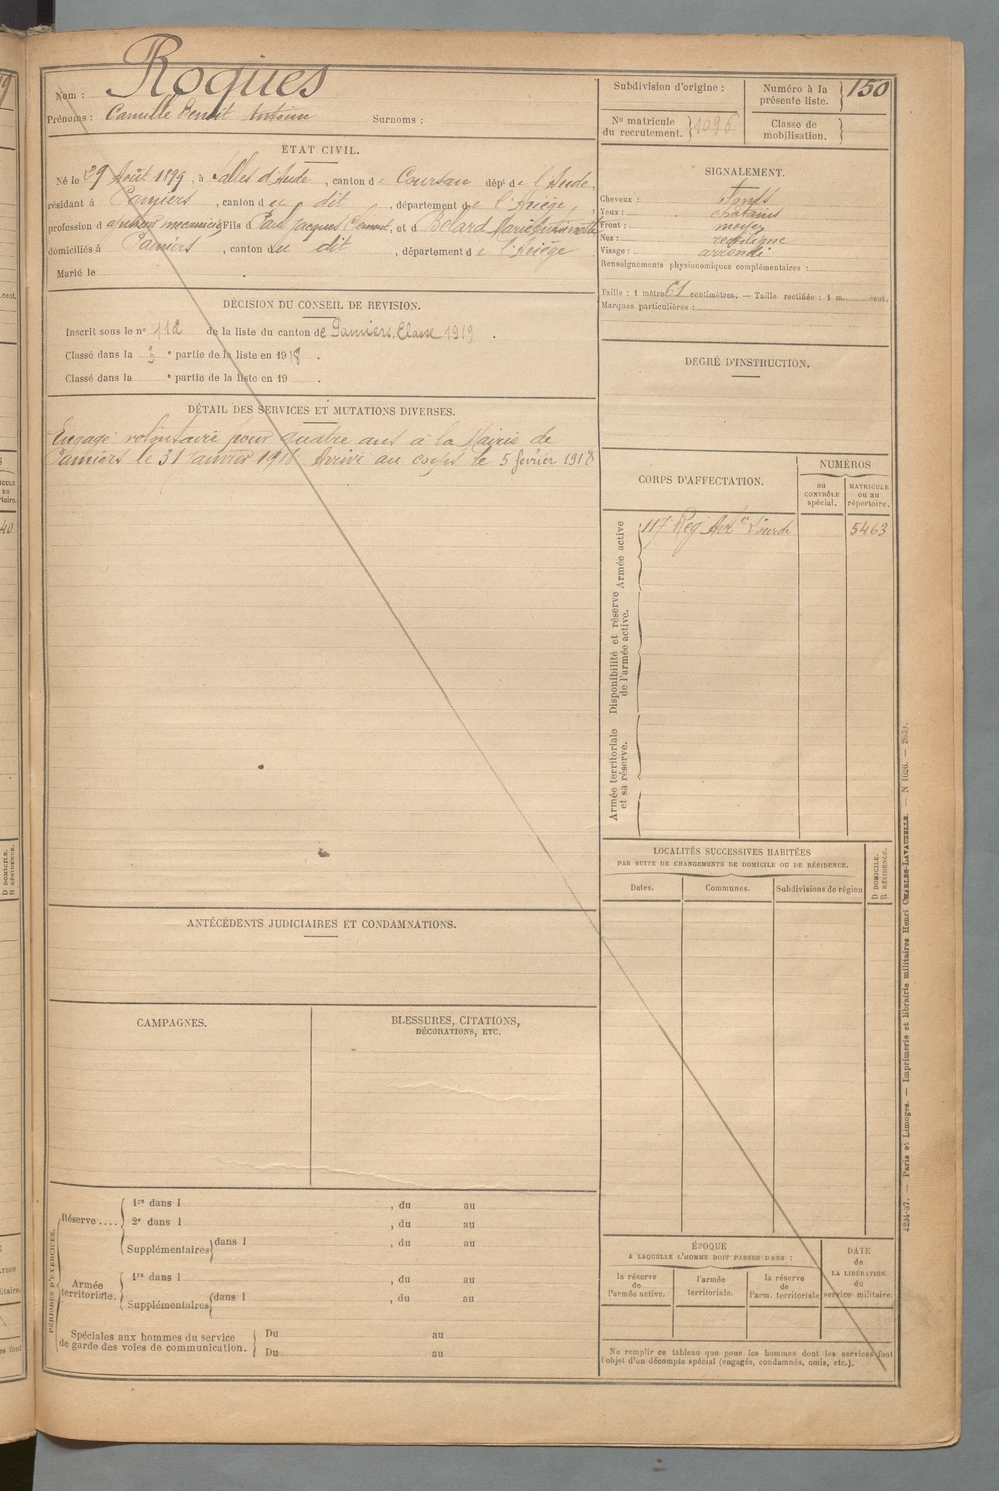 Nom : Roques
Prénoms : Camille Benoit Antoine Surnoms :
ETAT CIVIL.
Né le 29 Août 1899, à Salles d'Aude, canton de Coursan dépt de l'Aude,
résidant à Pamiers, canton du dit, département de l'Ariège,
profession d'ajusteur mecanicien Fils d Paul Jacques Clement, et d Belard Marie
domiciliés à Pamiers, canton du dit, département de l'Ariège
Marié le
DÉCISION DU CONSEIL DE REVISION.
Inscrit sous le n° 112 de la liste du canton de Pamiers. Classe 1919.
Classé dans la 3e partie de la liste en 1918.
Classé dans la e partie de la liste en 19 .
DÉTAIL DES SERVICES ET MUTATIONS DIVERSES.
Engagé volontaire pour quatre ans à la Mairie de
Pamiers le 31 Janvier 1918 Arrivé au corps le 5 février 1918
ANTÉCÉDENTS JUDICIAIRES ET CONDAMNATIONS.
CAMPAGNES.
BLESSURES, CITATIONS,
DÉCORATIONS, ETC.
PÉRIODES D'EXERCICES.
Réserve ....
1re dans l , du au
2e dans l , du au
Supplémentaires dans l , du au
Armée
territoriale.
1re dans l , du au
Supplémentaires dans l , du au
Spéciales aux hommes du service
de garde des voies de communication.
Du au
Du au
Subdivision d'origine :
Numéro à la
présente liste. 150
N° matricule
du recrutement. 1096
Classe de
mobilisation.
SIGNALEMENT.
Cheveux :
Yeux : chatains
Front : moyen
Nez : rectiligne
Visage : arrondi
Renseignements physionomiques complémentaires :
Taille : 1 mètre 61 centimètres. — Taille rectifiée : 1 m. cent.
Marques particulières :
DEGRÉ D'INSTRUCTION.
CORPS D'AFFECTATION.
NUMÉROS
au
CONTRÔLE
spécial.
MATRICULE
ou au
répertoire.
Armée active
117 Reg Artie Lourde 5463
Disponibilité et réserve
de l'armée active.
Armée territoriale
et sa réserve.
LOCALITÉS SUCCESSIVES HABITÉES
PAR SUITE DE CHANGEMENTS DE DOMICILE OU DE RÉSIDENCE.
Dates. Communes. Subdivisions de région
D DOMICILE.
R RÉSIDENCE.
ÉPOQUE
A LAQUELLE L'HOMME DOIT PASSER DANS :
la réserve
de
l'armée active.
l'armée
territoriale.
la réserve
de
l'arm. territoriale
DATE
de
LA LIBÉRATION
du
service militaire.
Ne remplir ce tableau que pour les hommes dont les services font
l'objet d'un décompte spécial (engagés, condamnés, omis, etc.).
4234-37. — Paris et Limoges. — Imprimerie et librairie militaires Henri CHARLES-LAVAUZELLE. — N 1026. —